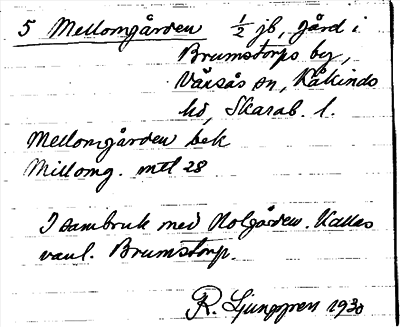 5 Mellomgården ½ jb, gård i
Brumstorps by,
Värsås sn, Kåkinds
hd, Skarab. l.
Mellomgården bek
Millomg. mtl 28
I sambruk med Nolgården. Kallas
vanl. Brumstorp.
R. Ljunggren 1930